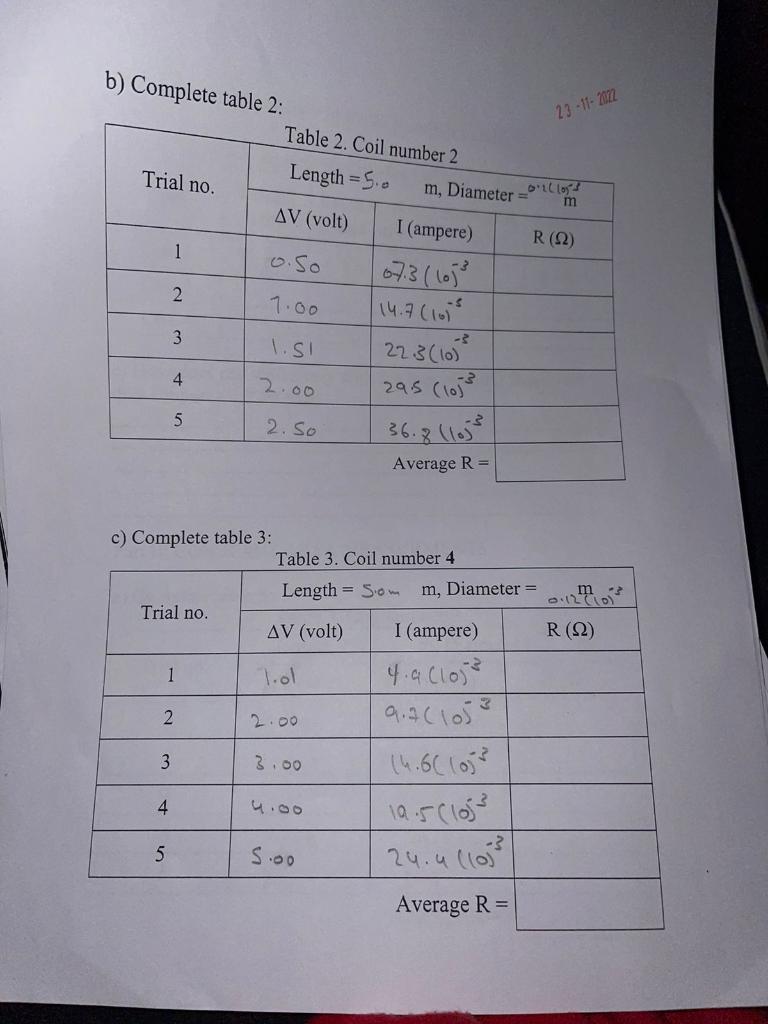 b) Complete table 2:
23-11-2022
Table 2. Coil number 2
Trial no.
Length = 5.0 m, Diameter = 0.2(10)^-3 m
ΔV (volt) I (ampere) R (Ω)
1 0.50 07.3(10)^-3
2 1.00 14.7(10)^-3
3 1.51 22.3(10)^-3
4 2.00 29.5(10)^-3
5 2.50 36.8(10)^-3
Average R =
c) Complete table 3:
Table 3. Coil number 4
Trial no.
Length = 5.0m m, Diameter = 0.12(10)^-3 m
ΔV (volt) I (ampere) R (Ω)
1 1.01 4.9(10)^-3
2 2.00 9.7(10)^-3
3 3.00 14.6(10)^-3
4 4.00 19.5(10)^-3
5 5.00 24.4(10)^-3
Average R =